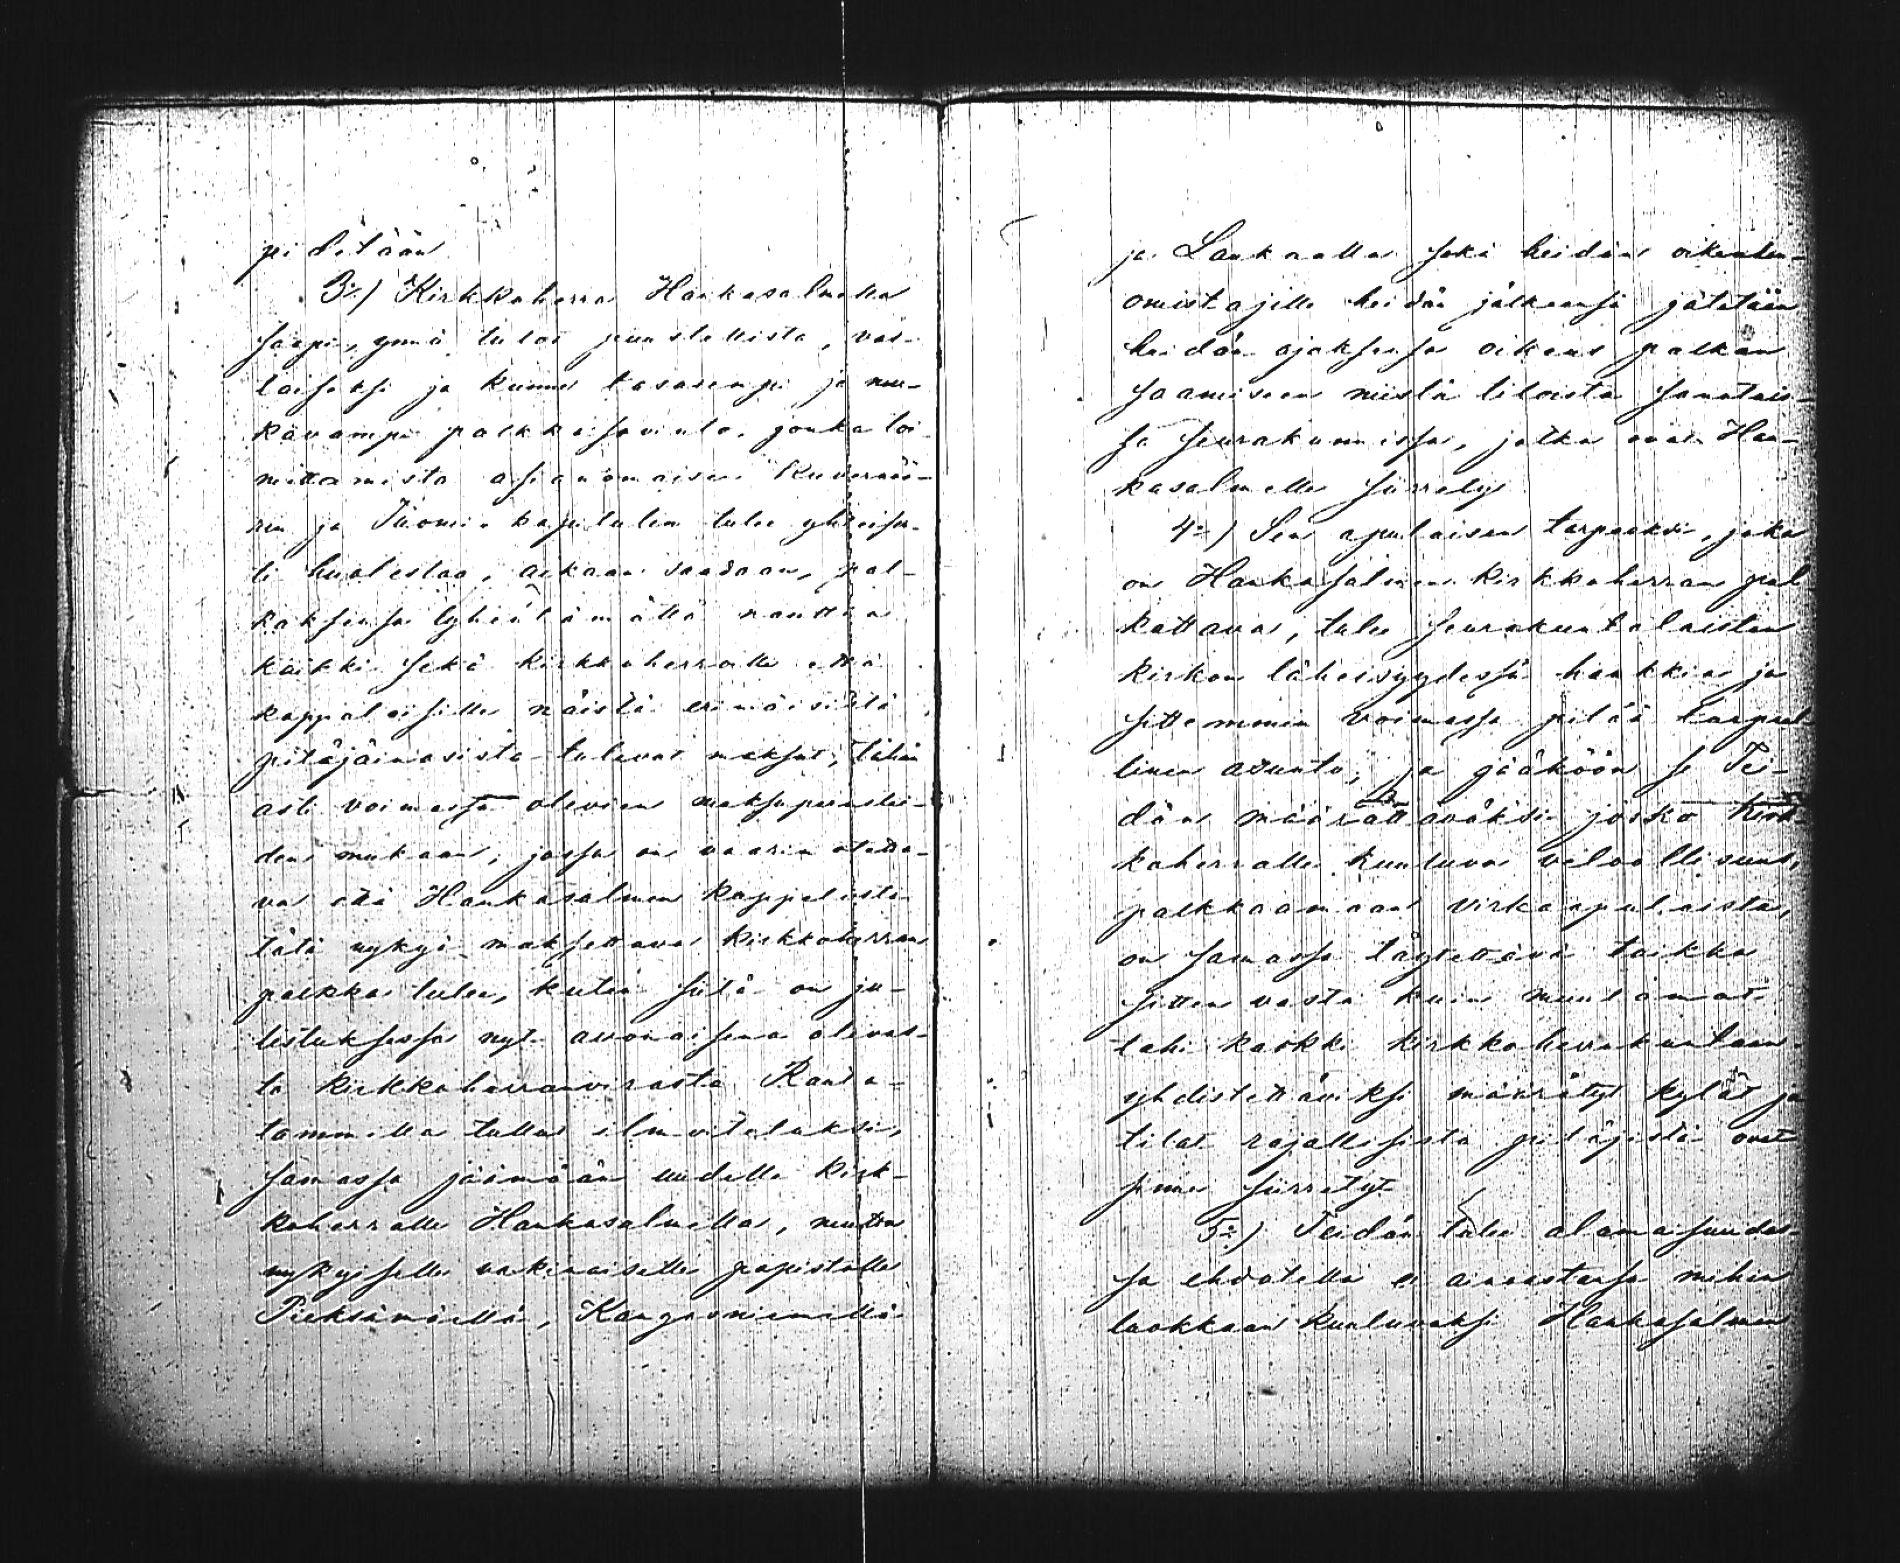 pidetään
3:) Kirkkoherra Hankasalmella
saapi, ynnä tulot puustellista, väs-
taiseksi ja kunnes tasasempi ja mu-
kavampi palkkaisovinto, jonka toi-
mittamista asianomaisen Kuvernöö-
rin ja Tuomio kapitulin tulee yhteises-
ti huolestaa, aikaan saadaan, pal-
kaksensa lyhentämättä nauttia
kaikki sekä kirkkoherralle että
kappalaisille näistä erinäisistä
pitäjäinosista tulevat maksut, tähän
asti voimassa olevien maksuperustei-
den mukaan, jossa on vaarin otetta-
va että Hankasalmen kappelista
tätä nykyä maksettava kirkkoherran
palkka tulee, kuten siitä on ju-
listuksessa nyt avonaisena olevas-
ta kirkkoherranvirasta Rauta-
lammilla tullut ilmoitetuksi,
samassa jäämään uudelle kirk-
koherralle Hankasalmella, mutta
nykyiselle vakinaiselle papistolle
Pieksämäellä, Kangasniemellä
ja Laukaalla sekä heidän oikeuden-
omistajille heidän jälkeensä jätetään
heidän ajaksensa oikeus palkan
saamiseen niistä tiloista sanotuis-
sa seurakunnissa, jotka ovat Han-
kasalmelle siirretyt
4:) Sen apulaisen tarpeeksi, joka
on Hankasalmen kirkkoherran pal
kattava, tulee seurakuntalaisten
kirkon läheisyydessä hankkia ja
sittemmin voimassa pitää tarpeel
linen asunto, ja jääköön se Tei-
dän määrättäväksi josko Kirk
koherralle kuuluva velvollisuus,
palkkaamaan virkaapulaista,
on samassa täytettävä taikka
sitten vasta kuin muutamat
tahi kaikki kirkkoherrakuntaan
yhdistettäviksi määrätyt kylät ja
tilat rajallisista pitäjistä ovat
sinne siirretyt
5:) Teidän tulee alamaisuudes-
sa ehdotella mihin
luokkaan kuuluvaksi Hankasalmen